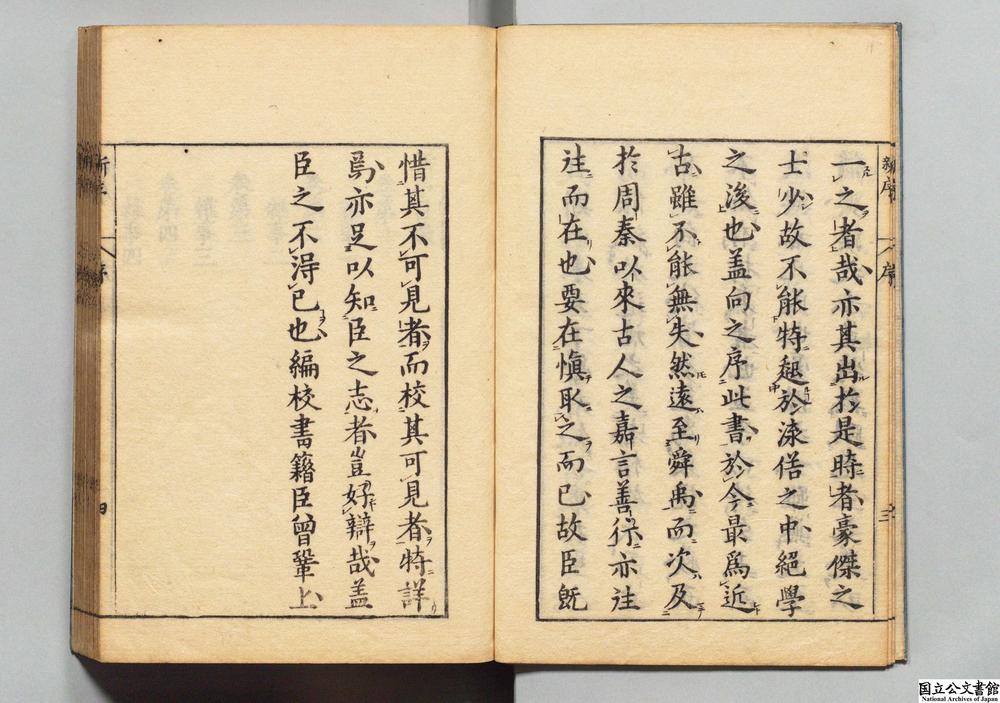 一之者哉亦其出扵是時者豪傑之
士少故不能特起扵流俗之中絕學
之後也盖向之序此書於今最爲近
古雖不能無失然遠至舜禹而次及
於周秦以來古人之嘉言善行亦往
往而在也要在慎取之而已故臣旣
惜其不可見者而校其可見者特詳
焉亦足以知臣之志者豈好辯哉盖
臣之不得已也編校書籍臣曾鞏上
新序
序
三
新序
序
四
国立公文書館
National Archives of Japan